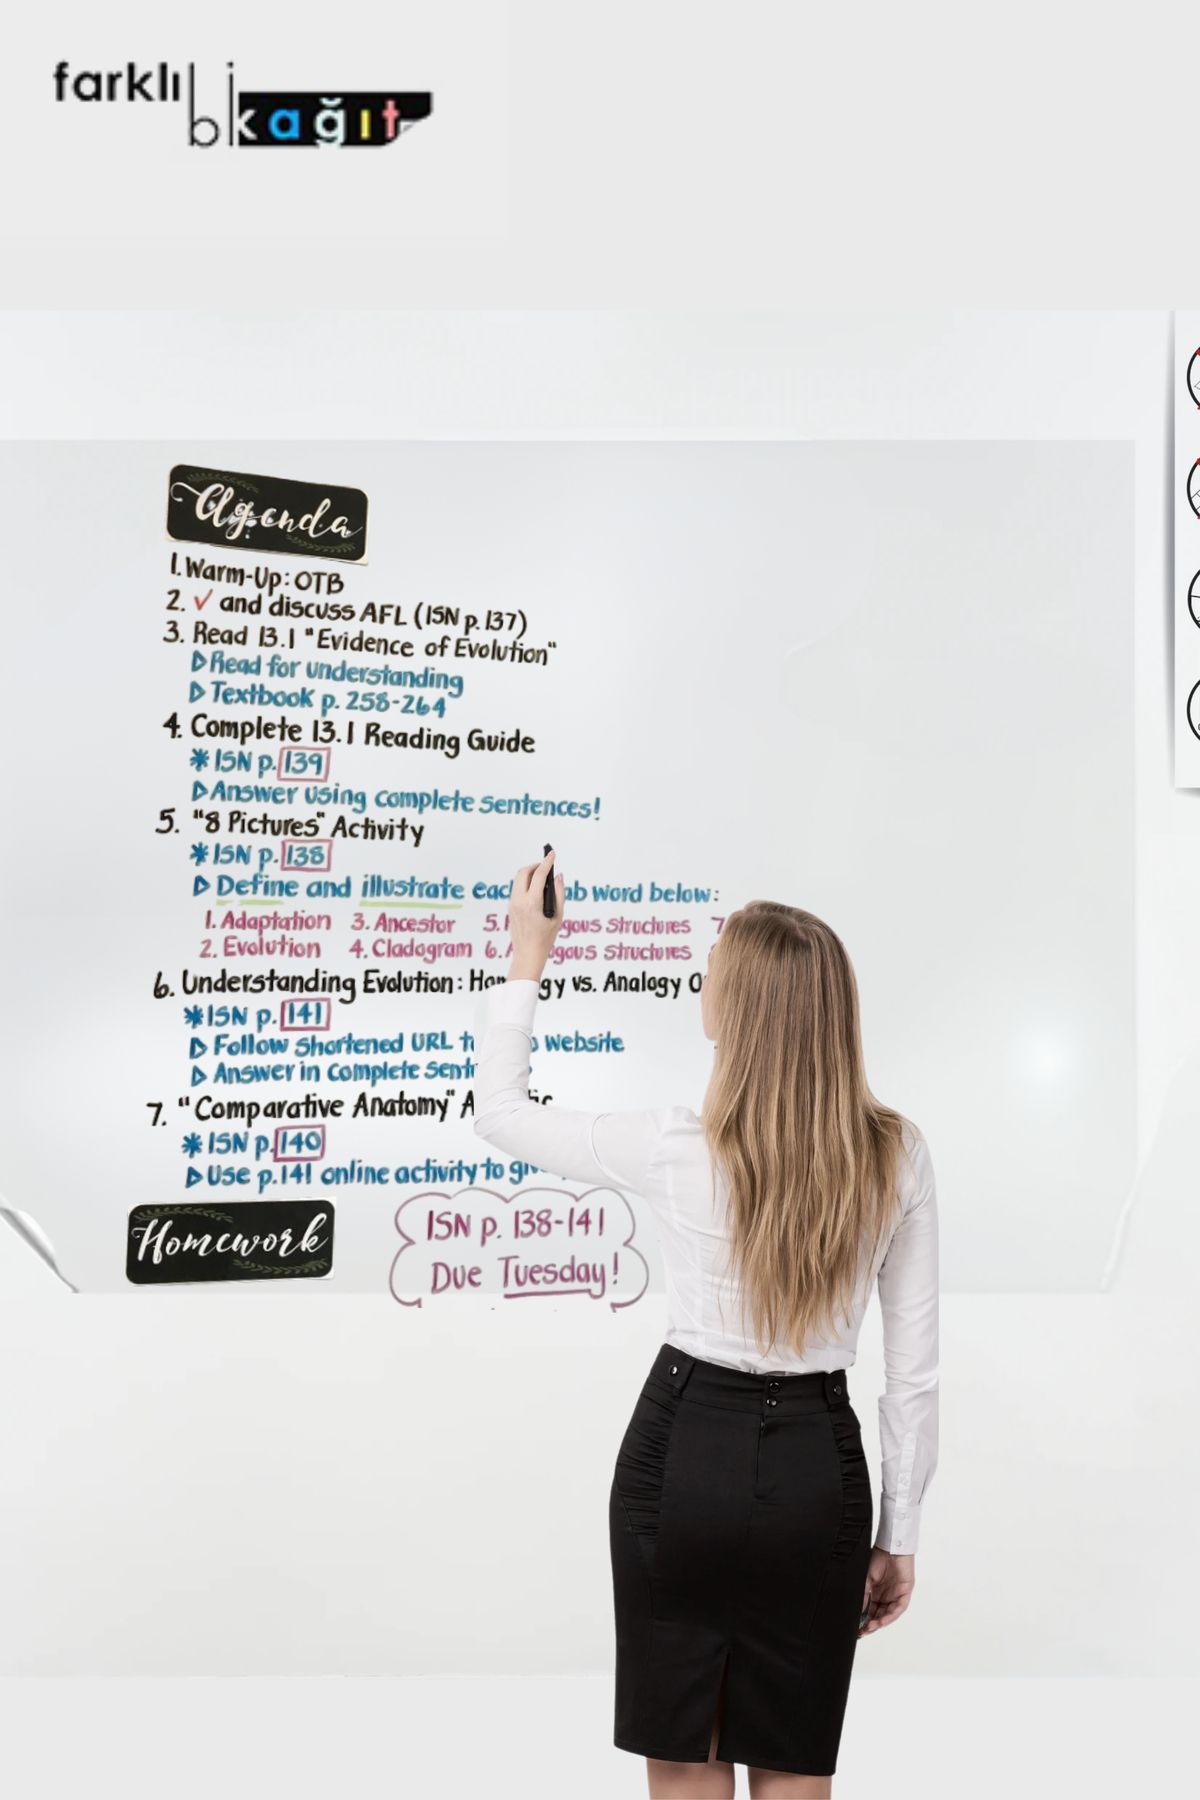 farklı bi kağıt
Agenda
1. Warm-Up: OTB
2. ✓ and discuss AFL (ISN p. 137)
3. Read 13.1 "Evidence of Evolution"
▷ Read for understanding
▷ Textbook p. 258-264
4. Complete 13.1 Reading Guide
* ISN p. 139
▷ Answer using complete sentences!
5. "8 Pictures" Activity
* ISN p. 138
▷ Define and illustrate each word below:
1. Adaptation 3. Ancestor 5. Structures 7.
2. Evolution 4. Cladogram 6. Structures
6. Understanding Evolution: vs. Analogy
* ISN p. 141
▷ Follow Shortened URL website
▷ Answer in complete
7. "Comparative Anatomy"
* ISN p. 140
▷ Use p. 141 online activity to
Homework
ISN p. 138-141
Due Tuesday!